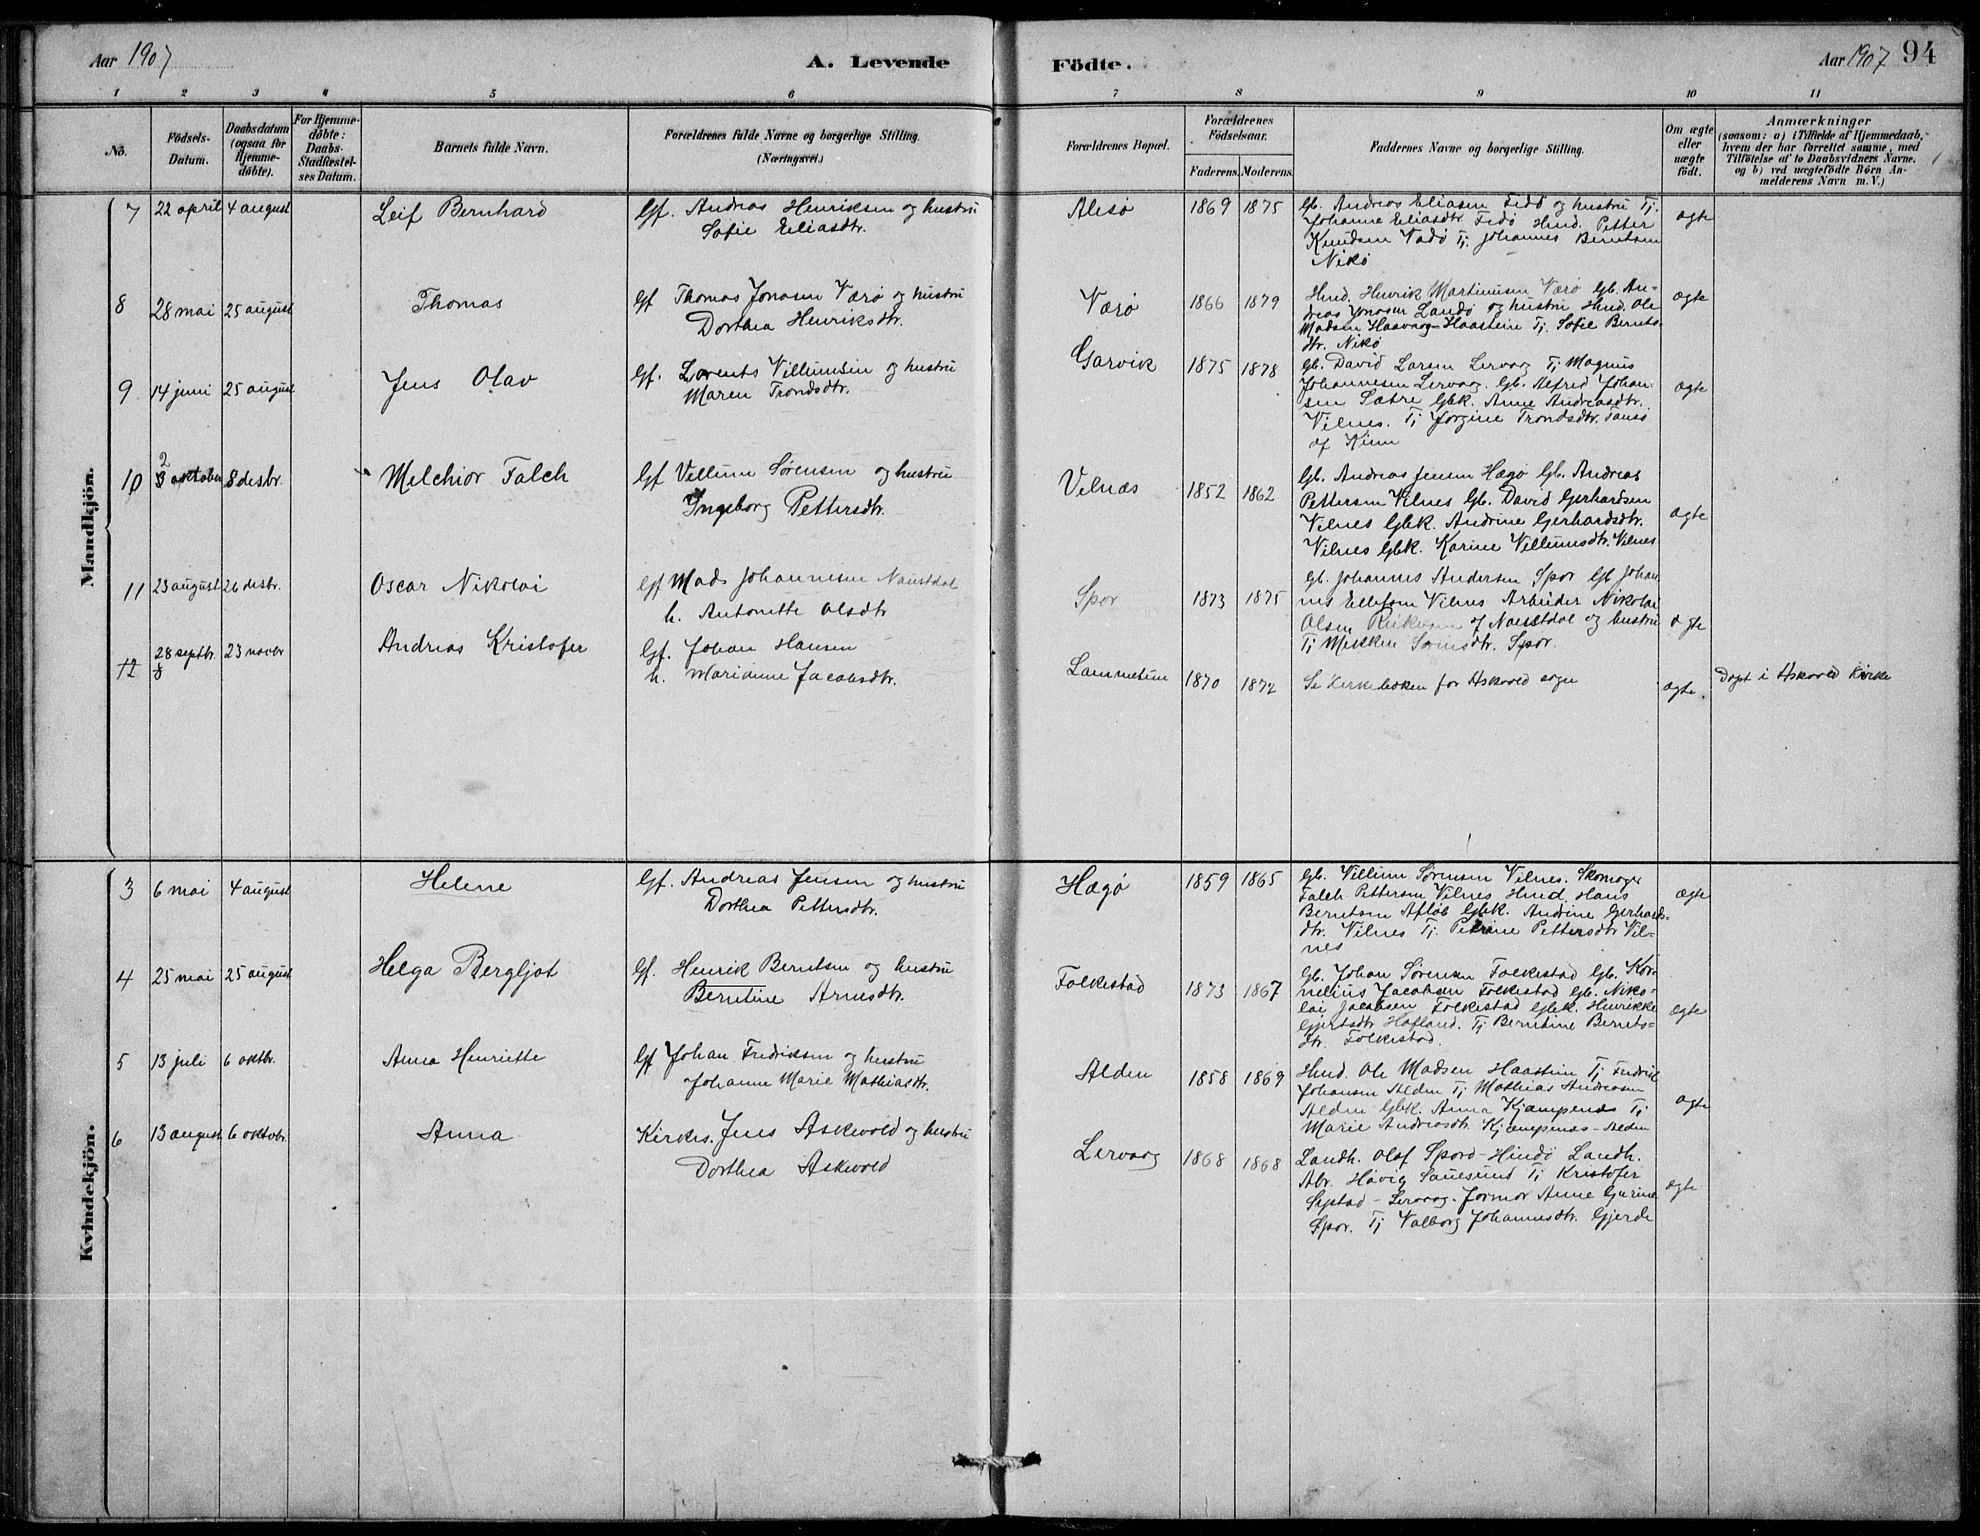 Aar 1907
A. Levende
Födte.
Aar 1907
94
1 2 3 4 5 6 7 8 9 10 11
No.
Födsels-
Datum.
Daabsdatum
(ogsaa for
Hjemme-
döbte).
For Hjemme-
döbte:
Daabs-
Stadfæstel-
ses Datum.
Barnets fulde Navn.
Forældrenes fulde Navne og borgerlige Stilling.
(Næringsvei.)
Forældrenes Bopæl.
Forældrenes
Födselsaar.
Faderens. Moderens.
Faddernes Navne og borgerlige Stilling.
Om ægte
eller
uægte
födt.
Anmærkninger
(saasom: a) i Tilfælde af Hjemmedaab,
hvem der har forrettet samme, med
Tilföielse af to Daabsvidners Navne,
og b) ved uægtefödte Börn An-
melderens Navn m. V.)
Mandkjön.
7 22 april 4 august Leif Bernhard
Gf. Andreas Henriksen og hustru
Sofie Eliasdtr.
Alesö 1869 1875
Gb. Andreas Eliasen Fedö og hustru Tj.
Johanne Eliasdtr. Fedö Hmd. Petter
Knudsen Vadö Tj. Johannes Berntsen
Nikö
ægte
8 28 mai 25 august Thomas
Gf Thomas Jonasen Værö og hustru
Dorthea Henriksdtr.
Værö 1866 1879
Hmd. Henrik Martinusen Værö Gb. An-
dreas Jonasen Landö og hustru Hmd. Ole
Madsen Haavaag-Haastein Tj. Sofie Bernts-
dtr. Nikö
ægte
9 14 juni 25 august Jens Olav
Gf. Lorents Villumsen og hustru
Maren Trondsdtr.
Garvik 1875 1878
Gb. David Larsen Lervaag Tj Magnus
Johannesen Lervaag. Gb. Alfred Johan-
sen Sætre Gbk. Anne Andreasdtr.
Vilnes. Tj Jorgine Trondsdtr. Tansö
af Kinn
ægte
10 2 3 oktober 8 desbr. Melchior Falch
Gf Villum Sørensen og hustru
Ingeborg Pettersdtr.
Vilnæs 1852 1862
Gb. Andreas Jensen Hægö Gb. Andreas
Pettersen Vilnes Gb. David Gerhardsen
Vilnes Gbk. Andrine Gerhardsdtr.
Vilnes Gbk. Karine Villumsdtr. Vilnes
ægte
11 23 august 26 desbr. Oscar Nikolai
Gf Mads Johannesen Naustdal
h. Antonette Olsdtr
Spor 1873 1875
Gb. Johannes Andersen Spor Gb Johan
nes Ellefsen Vilnes Arbeider Nikolai
Olsen af Naustdal og hustru
Tj Mekken Sörensdtr. Spor.
ægte
12 28 septbr. 23 novbr Andreas Kristofer
8
Gf. Johan Hansen
h. Marianne Jacobsdtr.
Lammetun 1870 1872
Se Kirkeboken for Askvold sogn
ægte.
Döpt i Askvold Kirke
Kvindekjön.
3 6 mai 4 august Helene
Gf. Andreas Jensen og hustru
Dorthea Pettersdtr.
Hægö 1859 1865
Gb. Villum Sørensen Vilnes. Skomager
Falch Pettersen Vilnes Hmd. Hans
Berntsen Aflöb Gbk. Andrine Gerhards-
dtr. Vilnes Tj. Petrine Pettersdtr Vil-
nes
ægte
4 25 mai 25 august Helga Bergljot
Gf. Henrik Berntsen og hustru
Berntine Arnesdtr.
Folkestad 1873 1867
Gb. Johan Sørensen Folkestad Gb. Kor-
nelius Jacobsen Folkestad Gb. Niko-
lai Jacobsen Folkestad Gbk. Henrikke
Gjertsdtr Hofland. Tj Berntine Bernts-
dtr. Folkestad.
ægte
5 13 juli 6 oktbr. Anna Henriette
Gf Johan Fredriksen og hustru
Johanne Marie Mathiasdtr.
Alden 1858 1869
Hmd. Ole Madsen Haastein Tj Fredrik
Johansen Alden Tj Mathias Andreasen
Alden Gbk. Anna Kjæmpenæs Tj
Marie Andreasdtr. Kjæmpenæs-Alden
ægte
6 13 august 6 oktobr. Anna
Kirkes. Jens Askevold og hustru
Dorthea Askevold
Lervaag 1868 1868
Landh. Olaf Spord-Hindö Landh.
Abr. Hövig Sauesund Tj Kristofer
Systad-Lervaag. Jormor Anne Gurine
Spor. Tj Valborg Johannesdtr. Gjerde
ægte